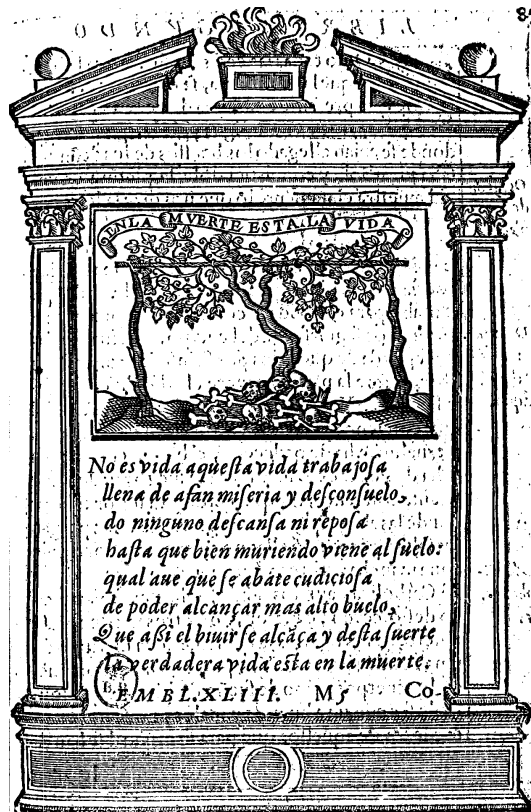 8
EN LA MVERTE ESTA LA VIDA
No es vida aqueſta vida trabajoſa
llena de afan miſeria y deſconſuelo,
do ninguno deſcanſa ni repoſa
haſta que bien muriendo viene al ſuelo:
qual aue que ſe abate cudicioſa
de poder alcançar mas alto buelo,
Que aſsi el biuir ſe alcãça y deſta ſuerte
la verdadera vida eſta en la muerte.
EMBL. XLIII. M5 Co-